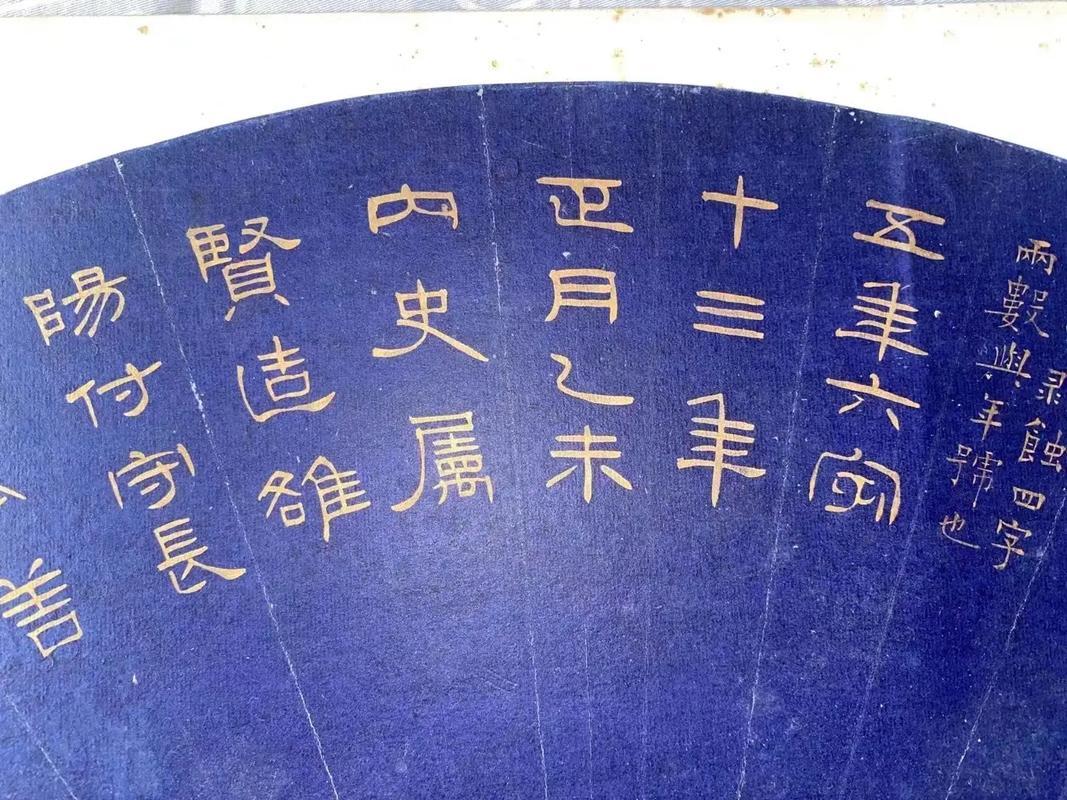 蝕四字
兩數與年號也
五年六
十三年
正月乙未
内史属
賢造雒
陽付守長
善